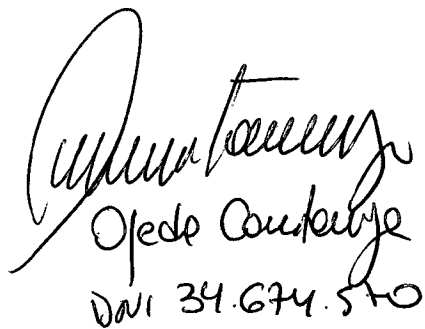 Ojeda Constanza
DNI 34.674.570